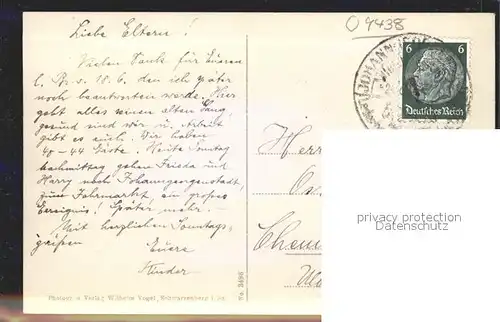 O 9438
Liebe Eltern!
Vielen Dank für Eueren
l. Br. v. 18.6. den ich später
noch beantworten werde. Hier
geht alles seinen alten Gang,
gesund sind wir u. Arbeit
gibt es auch. Wir haben
40-44 Gäste. Heute Sonntag
nachmittag gehen Frieda und
Harry nach Johanngeorgenstadt,
zum Jahrmarkt, ein großes
Ereignis! Später mehr.
Mit herzlichen Sonntags-
grüßen
Euere
Kinder
JOHANN
6 6
Deutsches Reich
Herr
Chem
privacy protection
Datenschutz
No. 3486
Photogr. u. Verlag Wilhelm Vogel, Schwarzenberg i. Sa.